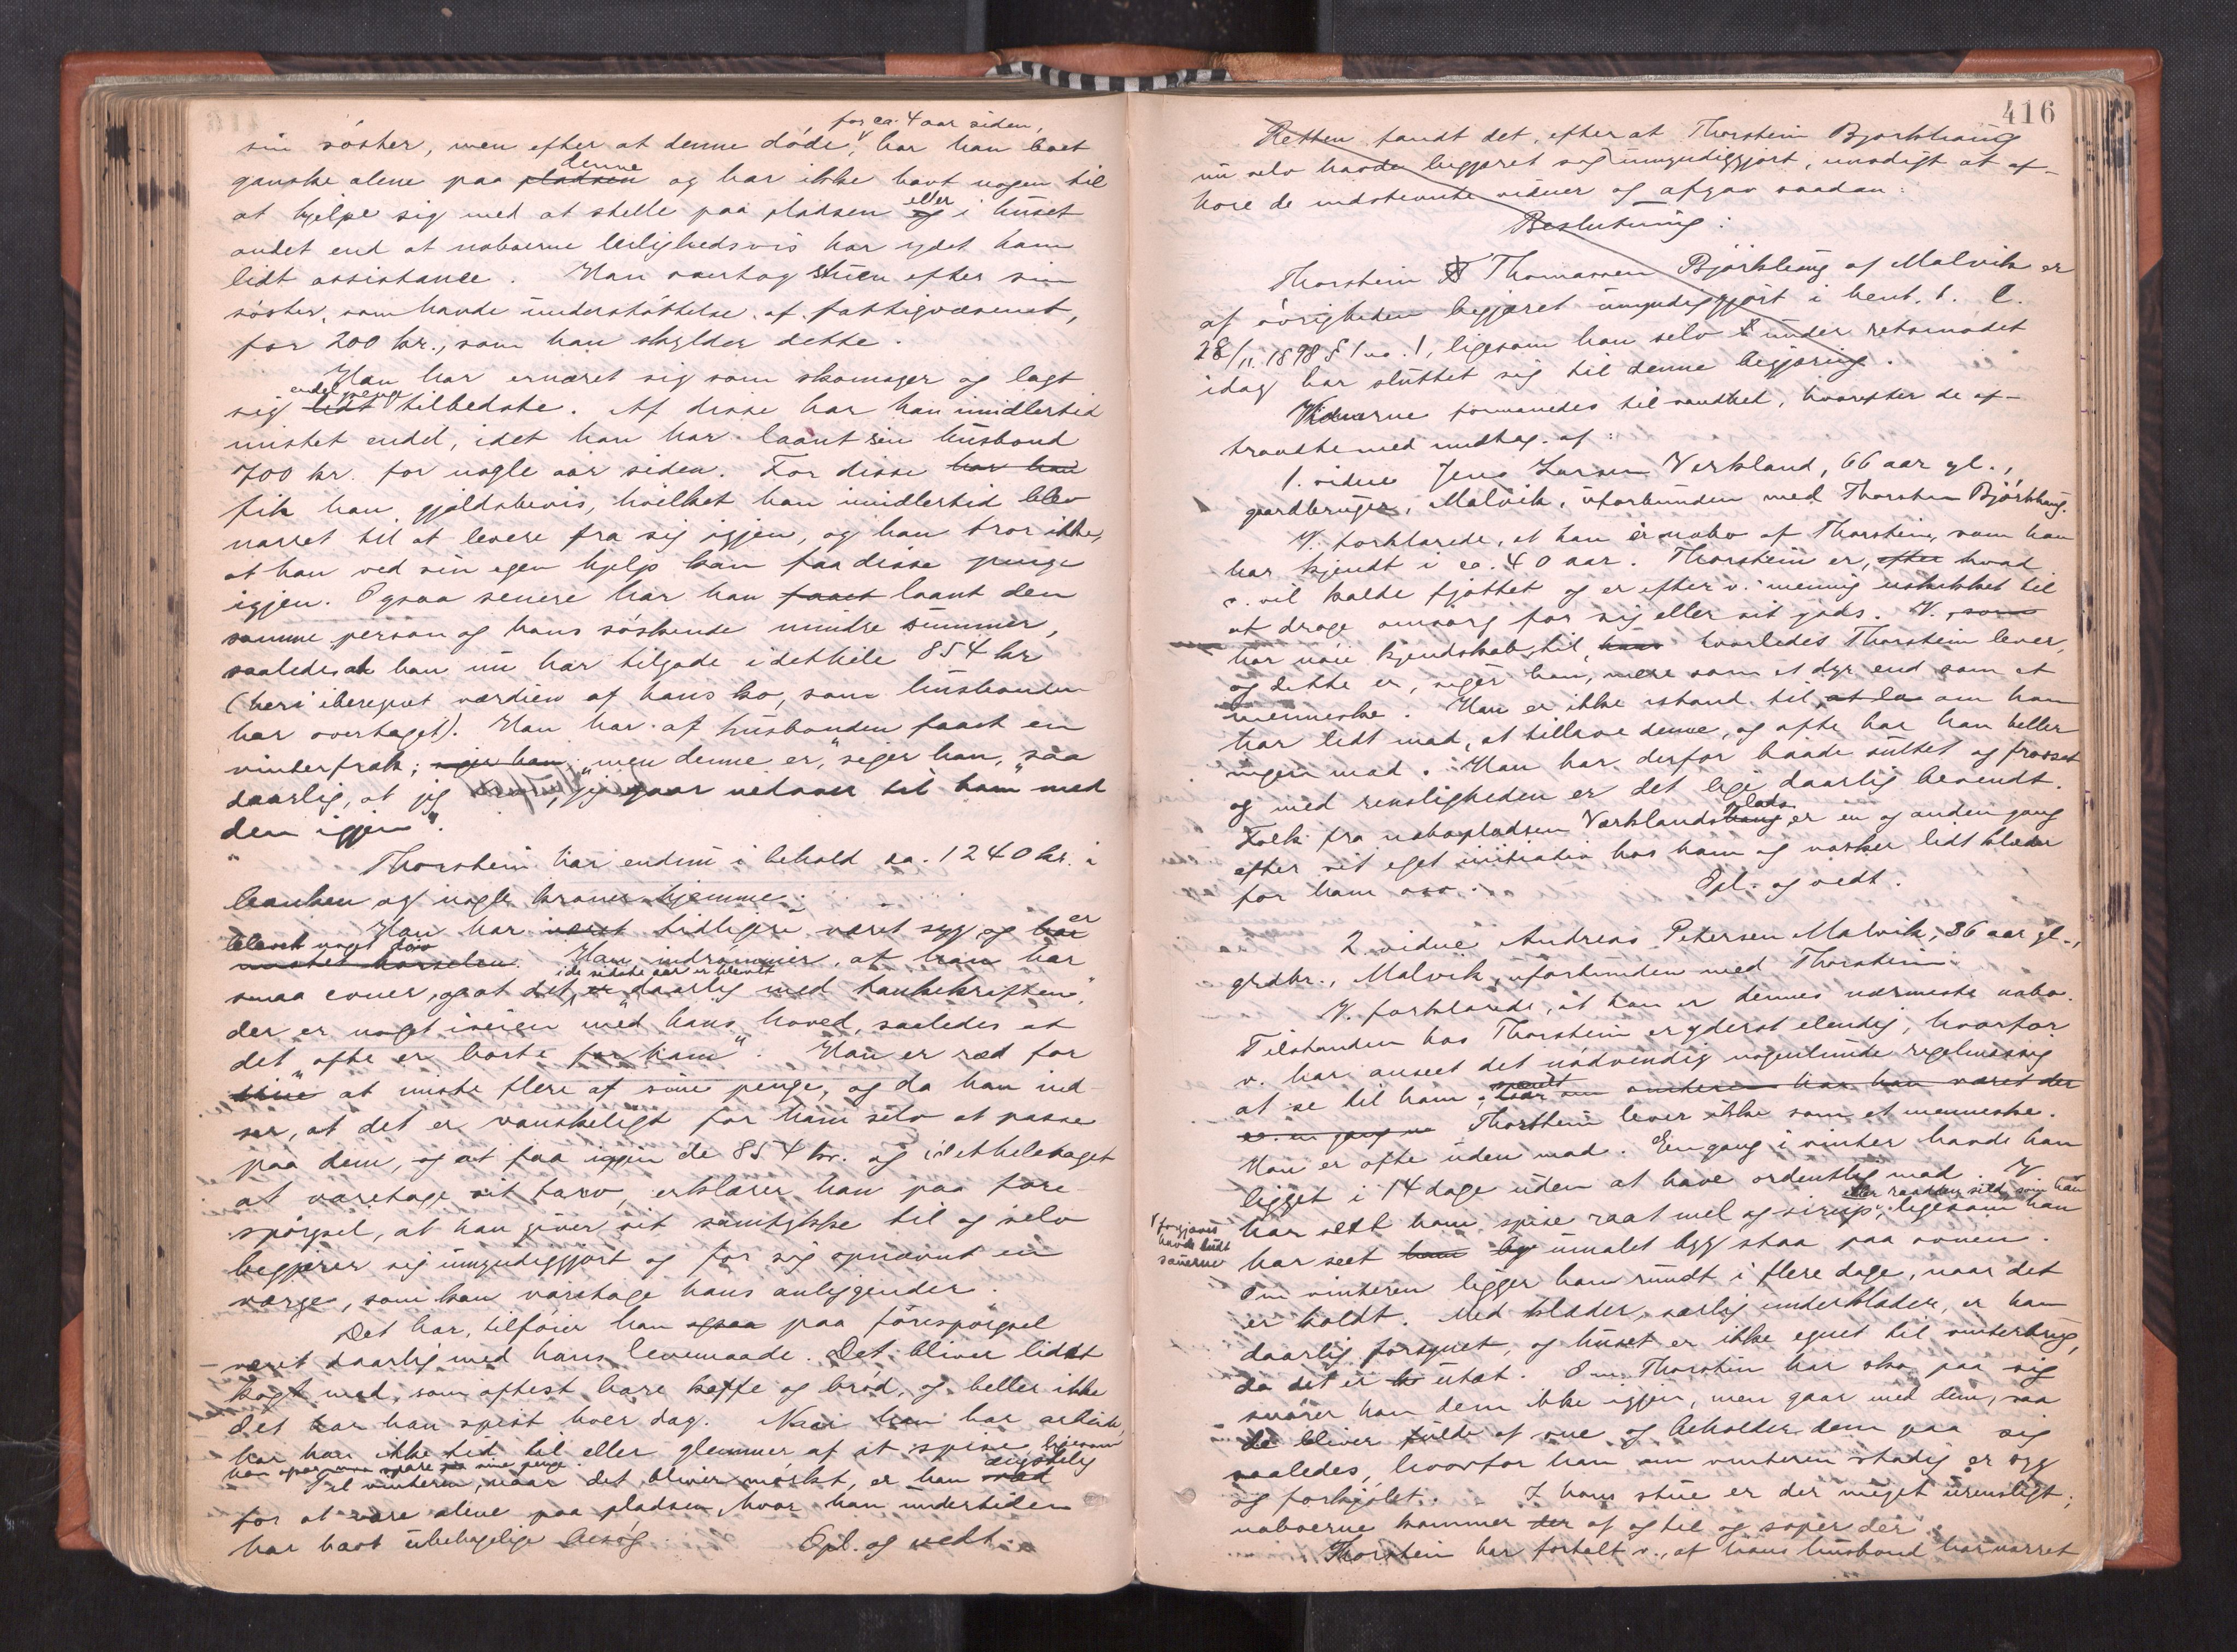 for ca. 4 aar siden,
sin söster, men efter at denne döde, har han boet
ganske alene paa denne pladsen og har ikke havt nogen til
at hjelpe sig med at stelle paa pladsen eller og i huset
andet end at naboerne leilighedsvis har ydet ham
lidt assistance. Han overtog stuen efter sin
söster, som havde understöttelse af fattigvæsenet,
for 200 kr., som han skylder dette.
Han har ernæret sig som skomager og lagt
sig endel penge lidt tilbedste. Af disse har han imidlertid
mistet endel, idet han har laant sin husbond
700 kr. for nogle aar siden. For disse har han
fik han gjeldsbevis, hvilket han imidlertid blev
narret til at levere fra sig igjen, og han tror ikke,
at han ved sin egen hjelp kan faa disse penge
igjen. Ogsaa senere har han faaet laant den
samme person og hans söskende mindre summer,
saaledes at han nu har tilgode idethele 854 kr
(heri iberegnet værdien af hans ko, som husbonden
har overtaget). Han har af husbonden faaet en
vinterfrak; siger han, "men denne er," siger han, "saa
daarlig, at jeg gaar nedover til ham med
den igjen".
Thorstein har endnu i behold ca. 1240 kr. i
banken og nogle kroner hjemme.
Han har været tidligere været syg og har er
blevet noget döv
mistet hörselen. Han indrömmer, at han har
smaa evner, og at det i de sidste aar er blevet er "daarlig med tankekraften",
der er noget iveien med hans hoved, saaledes at
det "ofte er borte for ham". Han er ræd for
sine at miste flere af sine penge, og da han ind-
ser, at det er vanskeligt for ham selv at passe
paa dem, og at faa igjen de 854 kr. og idethele taget
at varetage sit tarv, erklærer han paa fore
spörgsel, at han giver sit samtykke til og selv
begjærer sig umyndiggjort og for sig opnævnt en
værge, som kan varetage hans anliggender.
Det har, tilföier han ogsaa paa förespörgsel
værit daarlig med hans levemaade. Det bliver lidet
kogt mad, som oftest bare kaffe og bröd, og heller ikke
det har han spist hver dag. Naar han har arbeide,
har han ikke tid til eller glemmer af at spise, ligesom
han spare sine penge.
Paa vinteren, naar det bliver mörkt, er han ængstelig ræd
for at være alene paa pladsen, hvor han undertiden
har havt ubehagelige besög. Opl. og vedt.
416
Retten fandt det, efter at Thorstein Bjørkhaug
nu selv havde begjæret sig umyndiggjort, unödigt at af-
höre de indstevnte vidner og afgav saadan:
Beslutning:
Thorstein Thomassen Björkhaug af Malvik er
af övrigheden begjæret umyndiggjort i henh. t. l.
28/11 1898 § 1 no. 1, ligesom han selv under retsmödet
idag har sluttet sig til denne begjæring.
Vidnerne formanedes til sandhet, hvorefter de af-
traadte med undtag. af:
1. vidne Jens Larsen Verkland, 66 aar gl.,
gaardbruger, Malvik, uforbunden med Thorstein Björkhaug.
V. forklarede, at han er nabo af Thorstein, som han
har kjendt i ca. 40 aar. Thorstein er, efter hvad
v. vil kalde fjottet og er efter v. mening uskikket til
at drage omsorg for sig eller sit gods. V., som
har nöie kjendskab til, hans hvorledes Thorstein lever,
og dette er, siger han, mere som et dyr end som et
menneske. Han er ikke istand til, at la om han
har lidt mad, at tillave denne, og ofte har han heller
ingen mad. Han har derfor baade sultet og frosset
og med rensligheden er det lige daarlig bevendt.
Folk fra nabopladsen Verklandsplads haug er en og anden gang
efter sit eget initiativ hos ham og vasker lidt klæder
for ham osv. Opl. og vedt.
2 vidne Andreas Petersen Malvik, 36 aar gl.,
grdbr., Malvik, uforbunden med Thorstein.
V. forklarede, at han er dennes nærmeste nabo.
Tilstanden hos Thorstein er yderst elendig, hvorfor
v. har anseet det nödvendig nogenlunde regelmæssig
at se til ham, har om vinteren har han været der
en gang Thorstein lever ikke som et menneske.
Han er ofte uden mad. Een gang i vinter havde han
ligget i 14 dage uden at have ordentlig mad. V.
har seet ham spise raat mel og sirup, eller raadden sild, som han ligesom han
forgjæves
havde budt
sauerne
har seet ham by umalet byg staa paa ovnen.
Om vinteren ligger han rundt i flere dage, naar det
er koldt. Med klæder, særlig underklæder, er han
daarlig forsynet, og huset er ikke egnet til vinterbrug,
da det er utæt. Om Thorstein har sko paa sig
snörer han dem ikke igjen, men gaar med dem, saa
de bliver fulde af sne og beholder dem paa sig
saaledes, hvorfor han om vinteren stadig er syg
og forkjölet. I hans stue er der meget urensligt;
naboerne kommer der af og til og soper der.
Thorstein har fortalt v., at hans husbond har narret